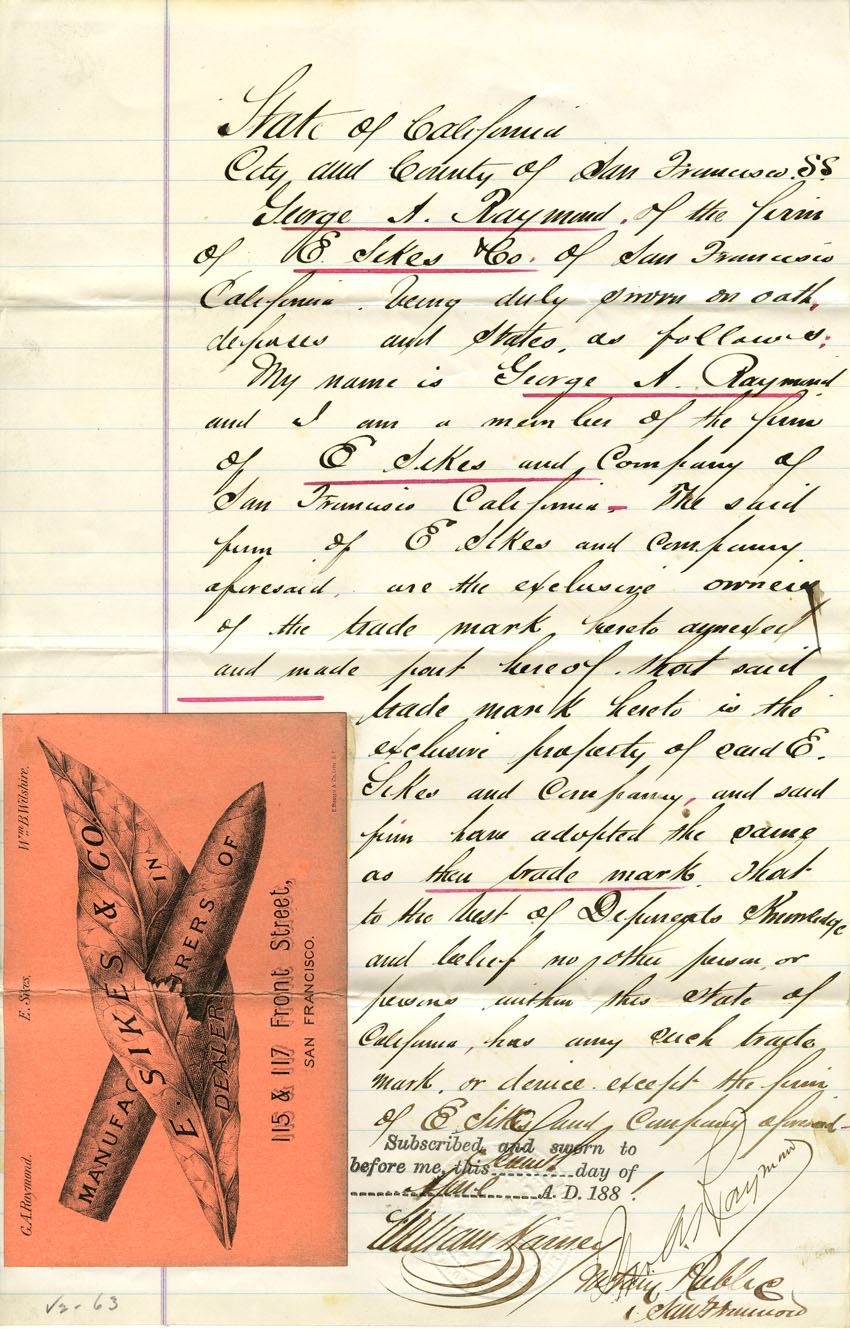 State of California
City and County of San Francisco. SS.
George A. Raymond, of the firm
of E. Sikes & Co. of San Francisco
California. being duly sworn on oath,
deposes and states, as follows:
My name is George A. Raymond
and I am a member of the firm
of E Sikes and Company of
San Francisco California - The said
firm of E Sikes and Company
aforesaid, are the exclusive owners
of the trade mark hereto annexed
and made part hereof. that said
trade mark hereto is the
exclusive property of said E.
Sikes and Company, and said
firm have adopted the same
as their trade mark. That
to the best of Deponents Knowledge
and belief no other person, or
persons within this State of
California, has any such trade
mark, or device except the firm
of E Sikes and Company aforesaid-
Subscribed and sworn to
before me, this day of
April A. D. 188 1
Geo. A. Raymond
William Harney
Notary Public
San Francisco
Wm. B. Wilshire.
E. Sikes.
G.A. Raymond.
E. SIKES & CO.
MANUFACTURERS OF
DEALERS IN
115 & 117 Front Street,
SAN FRANCISCO.
V2-63